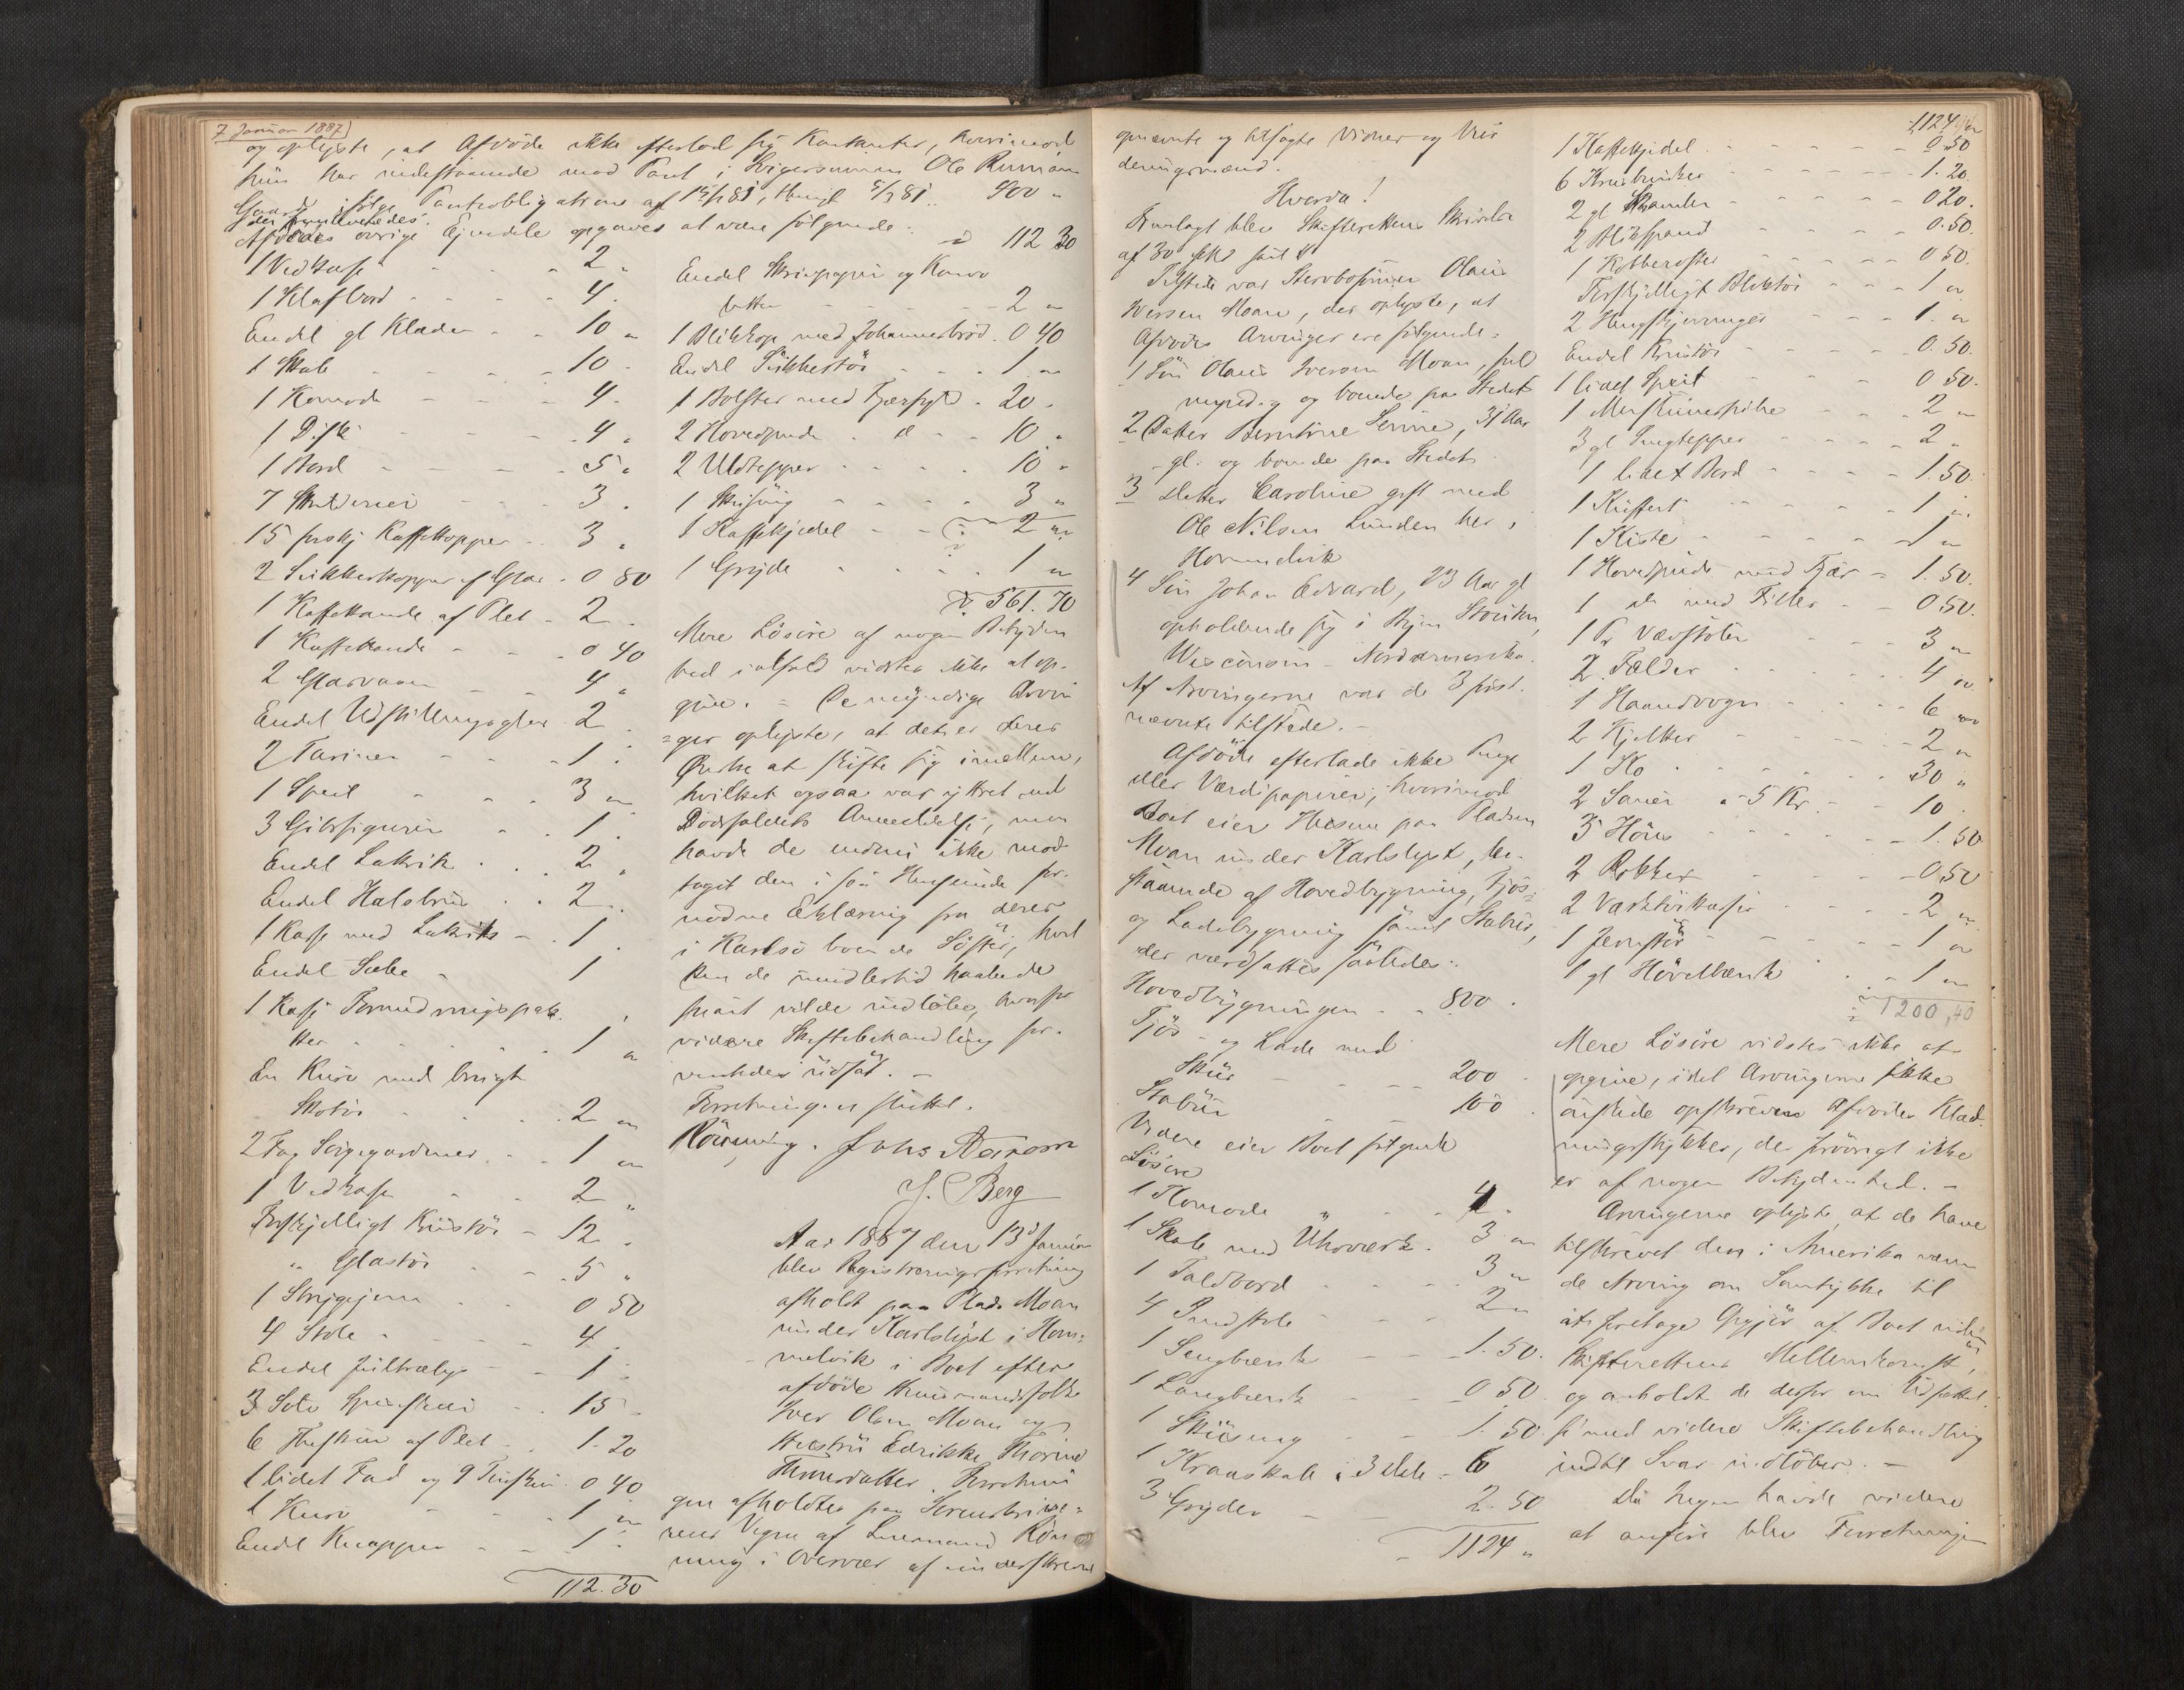 7 Januar 1887
og oplyste, at Afdøde ikke efterlod sig Kontanter, hvorimod
hun har indestaaende mod Pant i Svigersønnen Ole
Gaard ifølge Pantobligation af 400 "
der fremlevedes.
Afdødes øvrige Eiendele opgaves at være følgende:
1 Vedkasse - - - 2 "
1 Klafbord - - - 4 "
Endel gl Klæder - - 10 "
1 Skab - - - 10 "
1 Komode - - - 4 "
1 Disk - - - 4 "
1 Bord - - - 5 "
7 Skilderier - - 3 "
15 forskj Kaffekopper - 3 "
2 Sukkerkopper af Glas - 0 80
1 Kaffekande af Plet - 2 "
1 Kaffekande - - 0 40
2 Glasvaser - - 4 "
Endel Udstillingsglas 2 "
2 Tariner - - 1 "
1 Speil - - 3 "
3 Gibsfigurer - 1 "
Endel Lakrik - 2 "
Endel Halsbrus - 2 "
1 Kasse med Lakrits - 1 "
Endel Sæbe - 1
1 Kasse Forundringspak-
ker - - - 1 "
En Kurv med brugt
Skotøi - - 2 "
2 Fag Sørgegardiner - 1 "
1 Vedkasse - 2 "
Forskjelligt Kristøi - 12 "
" Glastøi - - 5 "
1 Strygejern - - 0 50
4 Stole - - - 4 "
Endel - 1 "
3 Sølv Spiseskeer - 15 "
6 Theskeer af Plet - 1. 20
1 lidet Fad og 9 Theskeer - 0 40
1 Kurv - - 1 "
Endel Knapper - - 1 "
112. 30
d 112 30
Endel Skrivepapir og Konvo
lutter - - 2 "
1 Blikkop med Johannesbrød - 0 40
Endel Sukkertøi - - 1 "
1 Bolster med Fjærfyld - 20 "
2 Hovedpuder - d - - 10 "
2 Uldtepper - - 10 "
1 Skisæng - - 3 "
1 Kaffekjedel - - 2 "
1 Gryde - - 1 "
561. 70
Mere Løsøre af nogen Betyden
hed ialfald vidstes ikke at op-
give. = De myndige Arvin
=ger oplyste, at det er deres
Ønske at skifte sig imellem,
hvilket ogsaa var ytret ved
Dødsfaldets Anmeldelse, men
havde de endnu ikke mod
taget den i saa Henseende for-
nødne Erklæring fra deres
i Karlsø boende Søster, hvil
ken de imidlertid haabede
snart vilde indløbe, hvorfor
videre Skiftebehandling for-
ventedes udsat. -
Forretningen sluttet.
Rønning. Johs Aarosen
J. Berg
Aar 1887 den 13d Januar
blev Registreringsforretning
afholdt paa Plads Moan
under Karlslyst i Hom=
melvik i Boet efter
afdøde Husmandsfolk
Iver Olsen Moan og
Hustru Edrikke Thorine
Thomasdatter. Forretnin
gen afholdtes paa Sorenskrive=
rens Vegne af Lensmand Røn
ning i Overvær af underskrevne
opnævnte og tilsagte Vidner og Vur
deringsmænd.
Hvorda!
Fremlagt blev Skifterettens Skrivelse
af 30 sidstl
Tilstede var Stervbosønnen Olaus
Iversen Moan, der oplyste, at
Afdødes Arvinger ere følgende:
1 Søn Olaus Iversen Moan, ful
myndig og boende paa Stedet
2 Datter Berntine Lovine, 31 Aar
gl. og boende paa Stedet
3 Datter Caroline gift med
Ole Nilsen Lunden her i
Hommelvik
4 Søn Johan Edvard, 23 Aar gl
opholdende sig i Byen
Wisconsin - Nordamerika.
Af Arvingerne var de 3 først-
nævnte tilstede. -
Afdøde efterlade ikke Penge
eller Værdipapirer; hvorimod
Boet eier Husene paa Pladsen
Moan under Karlslyst, be-
staaende af Hovedbygning, Fjøs-
og Ladebygning samt Stabur,
der værdsattes saaledes:
Hovedbygningen - - 800 "
Fjøs - og Lade med
Skur - - - - 200 "
Stabur - - - 100 "
Videre eier Boet følgende
Løsøre
1 Komode - - 4 "
1 Skab med Uhrværk - 3 "
1 Foldbord - - 3 "
4 Pindstole - 2 "
1 Sengbænk - - 1. 50.
1 Langbænk - - 0 50
1 Skiseng - - 1. 50
1 Kraaskab i 3 Dele - 6
3 Gryder - - 2. 50
1124 "
1124 "
1 Kaffekjedel - - - 0 50
6 Krusbunker - - - 1. 20.
2 gl Skamler - - - 0 20.
2 Blikspand - - - 0. 50.
1 Kobberøster - - - 0 50.
Forskjelligt Bliktøi - - - 1 "
2 Hængskjerringer - - 1. "
Endel Kristøi - - 0. 50.
1 lidet Speil - - - 0 50.
1 - - - 2 "
3 gl Sengtepper - - 2 "
1 lidet Bord - - - 1. 50.
1 Kuffert - - - 1 "
1 Kiste - - - 1 "
1 Hovedpude med Fjær - 1. 50.
1 do med Filler - - 0 50.
1 Pr Vævstole - - 3 "
2 Fælder - - - 4 "
1 Haandvogn - - 6 "
2 Kjelker - - - 2 "
1 Ko - - - 30 "
2 Sauer a 5 Kr. - - 10 "
3 Høns - - - 1. 50
2 Rokker - - - 0 50
2 - - - 2 "
1 Jernstør - - - 1 "
1 gl Høvelbænk - - 1 "
1200,40
Mere Løsøre vidstes ikke at
opgive, idet Arvingerne ikke
ønskede opskrevne Afdødes Klæd-
ningsstykker, der forøvrigt ikke
er af nogen Betydenhed. -
Arvingerne oplyste at de have
tilskrevet den i Amerika væren
de Arving om Samtykke til
at foretage Opgjør af Boet uden
Skifterettens Mellemkomst,
og anholdt de derfor om Udsættel-
se med videre Skiftebehandling
indtil Svar indløber. -
Da Ingen havde videre
at anføre blev Forretningen